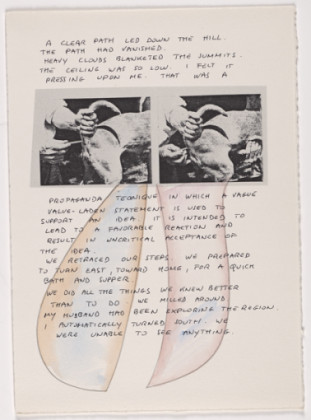 A CLEAR PATH LED DOWN THE HILL.
THE PATH HAD VANISHED.
HEAVY CLOUDS BLANKETED THE SUMMITS.
THE CEILING WAS SO LOW. I FELT IT
PRESSING UPON ME. THAT WAS A
PROPAGANDA TECNIQUE IN WHICH A VAGUE
VALUE-LADEN STATEMENT IS USED TO
SUPPORT AN IDEA. IT IS INTENDED TO
LEAD TO A FAVORABLE REACTION AND
RESULT IN UNCRITICAL ACCEPTANCE OF
THE IDEA.
WE RETRACED OUR STEPS. WE PREPARED
TO TURN EAST, TOWARD HOME, FOR A QUICK
BATH AND SUPPER.
WE DID ALL THE THINGS WE KNEW BETTER
THAN TO DO. WE MILLED AROUND
MY HUSBAND HAD BEEN EXPLORING THE REGION.
I AUTOMATICALLY TURNED SOUTH. WE
WERE UNABLE TO SEE ANYTHING.